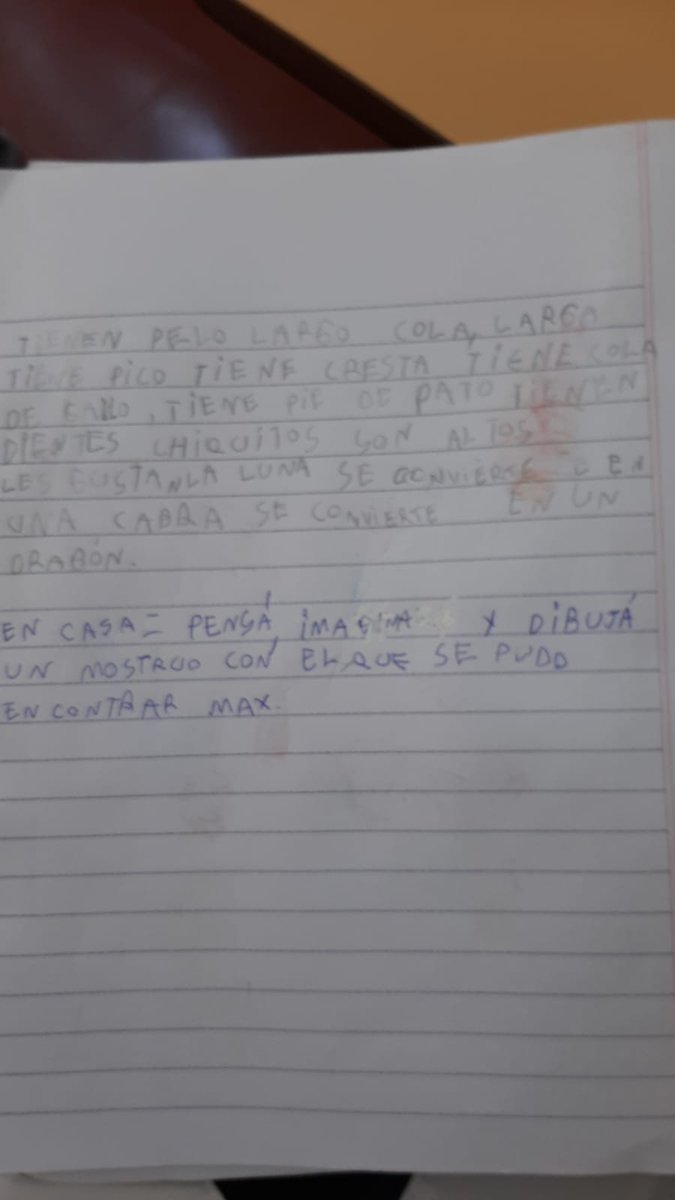 TIENEN PELO LARGO COLA, LARGO
TIENE PICO TIENE CRESTA TIENE COLA
DE GALLO, TIENE PIE DE PATO TIENEN
DIENTES CHIQUITOS SON ALTOS
LES GUSTAN LA LUNA SE CONVIERTE EN
UNA CABRA SE CONVIERTE EN UN
DRAGÓN.
EN CASA = PENSÁ, IMAGINA Y DIBUJÁ
UN MOSTRUO CON EL QUE SE PUDO
ENCONTRAR MAX.